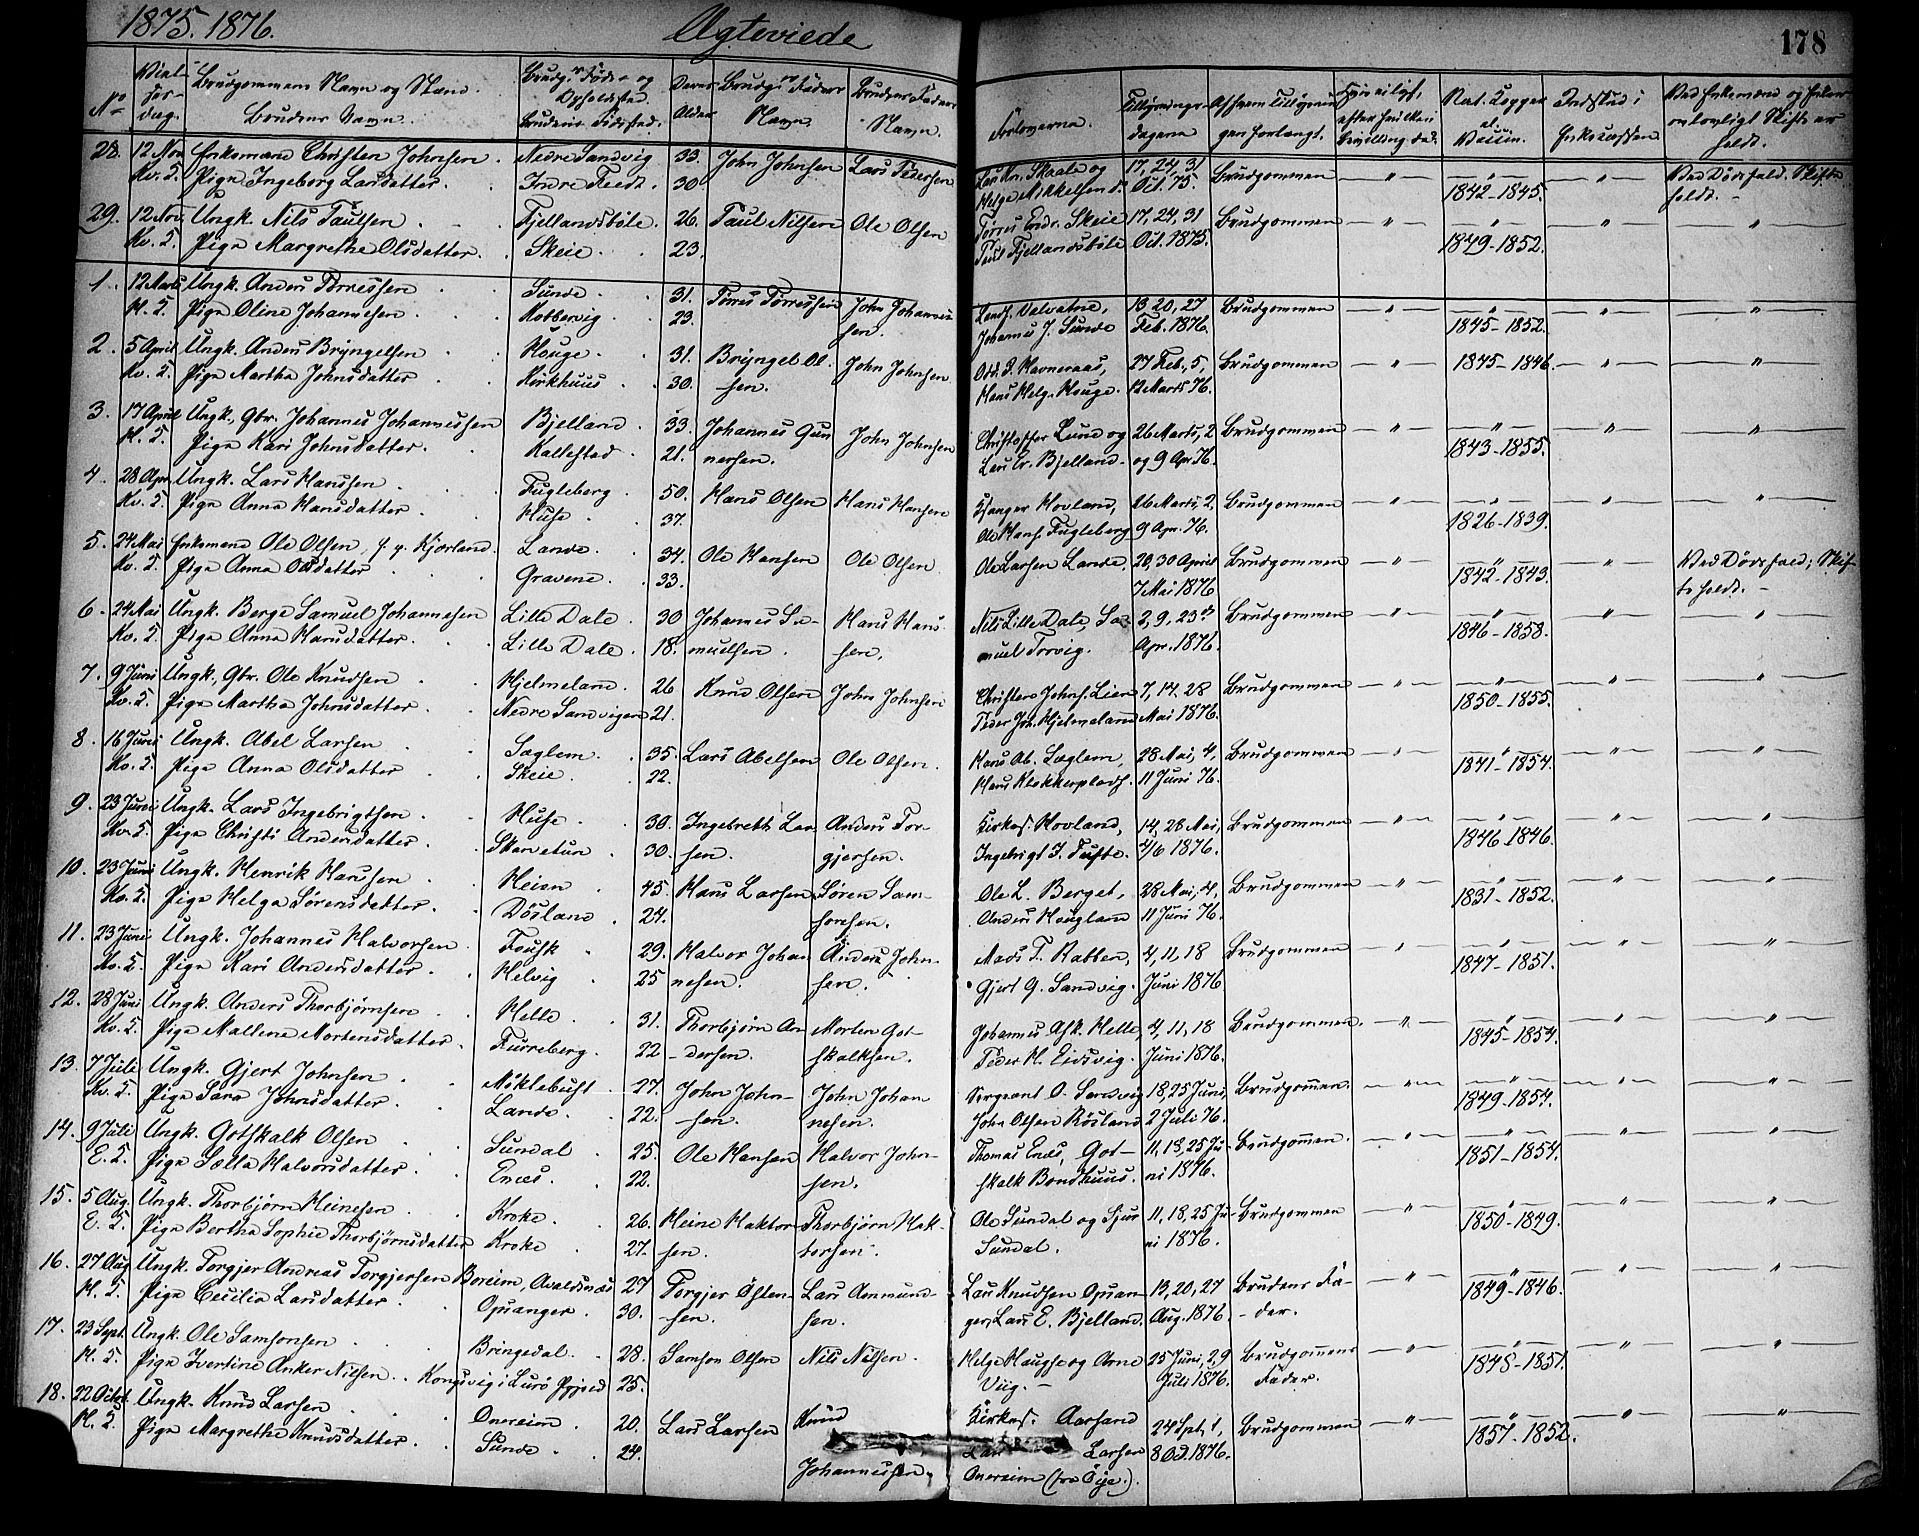 1875. 1876.
Ægteviede
178
No
Brudgommens Navn og Stand.
Brudens Navn.
Brudg.s Føde- og Opholdssted.
Brudens Fødested.
Deres Alder
Brudg.s Faders Navn.
Brudens Faders Navn.
Forloverne.
Tillysnings-dagene
Af hvem Tillysningen forlangt.
Nat. Kopper el. Vaccin.
Indskud i Enkecassen.
28. 12 Nov. Enkemand Christen Johnsen. Nedre Sandvig 33. John Johnsen Lars Pedersen Lars Kn. Skaale og 17, 24, 31 Brudgommen
Kv. S. Pige Ingeborg Larsdatter. Indre 30 Helge Mikkelsen Oct. 75. 1842-1845. Ved Dødsfald. Skifte holdt.
29. 12 Nov. Ungk. Nils Paulsen Fjellandsbøle. 26. Paul Nilsen Ole Olsen Tørres Endr. Skeie 17, 24, 31 Brudgommen
Kv. S. Pige Margrethe Olsdatter. Skeie. 23. Paul Fjellandsbøle Oct. 1875. 1849-1852.
1. 12 Marts Ungk. Anders Tørressen Sunde. 31. Tørres Tørressen John Johannes- Valvatne, 13, 20, 27 Brudgommen
H. S. Pige Oline Johannesen. Kobbervig 23. sen. Johannes J. Sunde Feb. 1876. 1845-1852.
2. 5 April Ungk. Anders Bryngelsen Houge. 31. Bryngel Ol- John Johnsen Odd. P. Ravneraas, 27 Feb., 5, Brudgommen 1845-1846.
Kv. S. Pige Martha Johnsdatter Kirkhuus 30. sen. Hans Helg. Houge. 12 Marts 76.
3. 17 April Ungk., Gbr. Johannes Johannessen Bjelland. 33. Johannes Gun- John Johnsen Christoffer Lund og 26 Marts, 2 Brudgommen
H. S. Pige Kari Johnsdatter. Kallestad. 21. nersen. Lars Er. Bjelland. og 9 Apr. 76. 1843-1855.
4. 28 Apr. Ungk. Lars Hanssen Fugleberg. 50. Hans Olsen Hans Hansen Hovland, 26 Marts, 2, Brudgommen
Kv. S. Pige Anna Hansdatter Huse 37. Ole Hans. Fugleberg 9 Apr. 76. 1826-1839.
5. 24 Mai Enkemand Ole Olsen, Kjørland. Lande. 34. Ole Hansen Ole Olsen Ole Larsen Lande, 30 April Brudgommen
Kv. S. Pige Anna Olsdatter Gravene. 33. 7 Mai 1876 1842-1843. Ved Dødsfald; Skifte holdt.
6. 24 Mai Ungk. Berge Samuel Johannesen Lille Dale. 30 Johannes Sa- Hans Han- Nils Lille Dale, Sa- 2, 9, 23de Brudgommen
Kv. S. Pige Anna Hansdatter. Lille Dale. 18. muelsen. sen. muel Torvig. Apr. 1876. 1846-1858.
7. 9 Juni Ungk., Gbr. Ole Knudsen Hjelmeland. 26 Knud Olsen John Johnsen Christen Johns. Lien 7, 14, 28 Brudgommen
Kv. S. Pige Martha Johnsdatter Nedre Sandvigen 21. Peder Joh. Hjelmeland Mai 1876. 1850-1855.
8. 16 Juni Ungk. Abel Larsen Sæglem. 35. Lars Abelsen Ole Olsen. Hans Ab. Sæglem, 28 Mai, 4, Brudgommen
Kv. S. Pige Anna Olsdatter Skeie. 22. Hans Klokkerplads. 11 Juni 76. 1841-1854.
9. 23 Juni Ungk. Lars Ingebrigtsen Huse 30. Ingebreth Lar- Anders Tor- Kirkes. Hovland, 14, 28 Mai, Brudgommen
Kv. S. Pige Christi Andersdatter Skarvetun 30. sen. gjersen. Ingebrigt I. Tufte. 4/6 1876. 1846-1846.
10. 23 Juni Ungk. Henrik Hansen Heien 45. Hans Larsen Sören Sam- Ole L. Berget, 28 Mai, 4, Brudgommen
Kv. S. Pige Helga Sörensdatter. Døsland 24. sonsen. Anders Hougland 11 Juni 76. 1831-1852.
11. 23 Juni Ungk. Johannes Halvorsen Fousk 29. Halvor Johan- Anders John- Mads T. Rabben, 4, 11, 18 Brudgommen
Kv. S. Pige Kari Andersdatter Helvig 25 nesen. sen. Gjert G. Sandvig. Juni 1876 1847-1851.
12. 28 Juni Ungk. Anders Thorbjørnsen Helle 31. Thorbjørn An- Morten Got- Johannes Helle, 4, 11, 18 Brudgommen.
Kv. S. Pige Mallene Mortensdatter Furreberg. 22 dersen. skalksen. Peder H. Eidsvig. Juni 1876. 1845-1854.
13. 7 Juli Ungk. Gjert Johnsen Møklebust 27. John John- John Johan- Sergeant O. Sandvig 18, 25 Juni, Brudgommen.
Kv. S. Pige Sara Johnsdatter. Lande. 22. sen. nesen. John Olsen Røsland 2 Juli 76. 1849-1854.
14. 9 Juli Ungk. Gotskalk Olsen Sundal 25. Ole Hansen Halvor John- Thomas Enæs, Got- 11, 18, 25 Ju- Brudgommen.
E. S. Pige Sælla Halvorsdatter. Enæs. 22. sen. skalk Bondhuus. ni 1876. 1851-1854.
15. 5 Aug. Ungk. Thorbjørn Heinesen Kroke. 26. Heine Haktor- Thorbjørn Hak- Ole Sundal og Sjur 11, 18, 25 Ju- Brudgommen
E. S. Pige Bertha Sophie Thorbjørnsdatter Kroke 27. sen. torsen. Sundal. ni 1876. 1850-1849.
16. 27 Aug Ungk. Torgjer Andreas Torgjersen Boreim, Avaldsnæs 27 Torgjer Østen- Lars Aamund- Lars Knudsen Opsan- 13, 20, 27 Brudens Fa-
H. S. Pige Cecilia Larsdatter Opsanger. 30. sen. sen. ger, Lars E. Bjelland. Aug. 1876 der. 1849-1846.
17. 23 Sept. Ungk. Ole Samsonsen Bringedal. 28. Samson Olsen Nils Nilsen. Helge Haugse og Arne 25 Juni, 2, 9 Brudgommens
H. S. Pige Ivertine Anker Nilsen. Kongsvig i Lurø Prgjeld 25. Viig. Juli 1876. Fader. 1848-1851.
18. 22 Octob. Ungk. Knud Larsen Onereim. 20. Lars Larsen Knud Kirkes. Aarsand 24 Sept., 1, Brudgommen
H. S. Pige Margrethe Knudsdatter. Sunde 24. Johannessen Larsen 8 Oct. 1876. 1857-1852.
Onereim (fra Øye.)